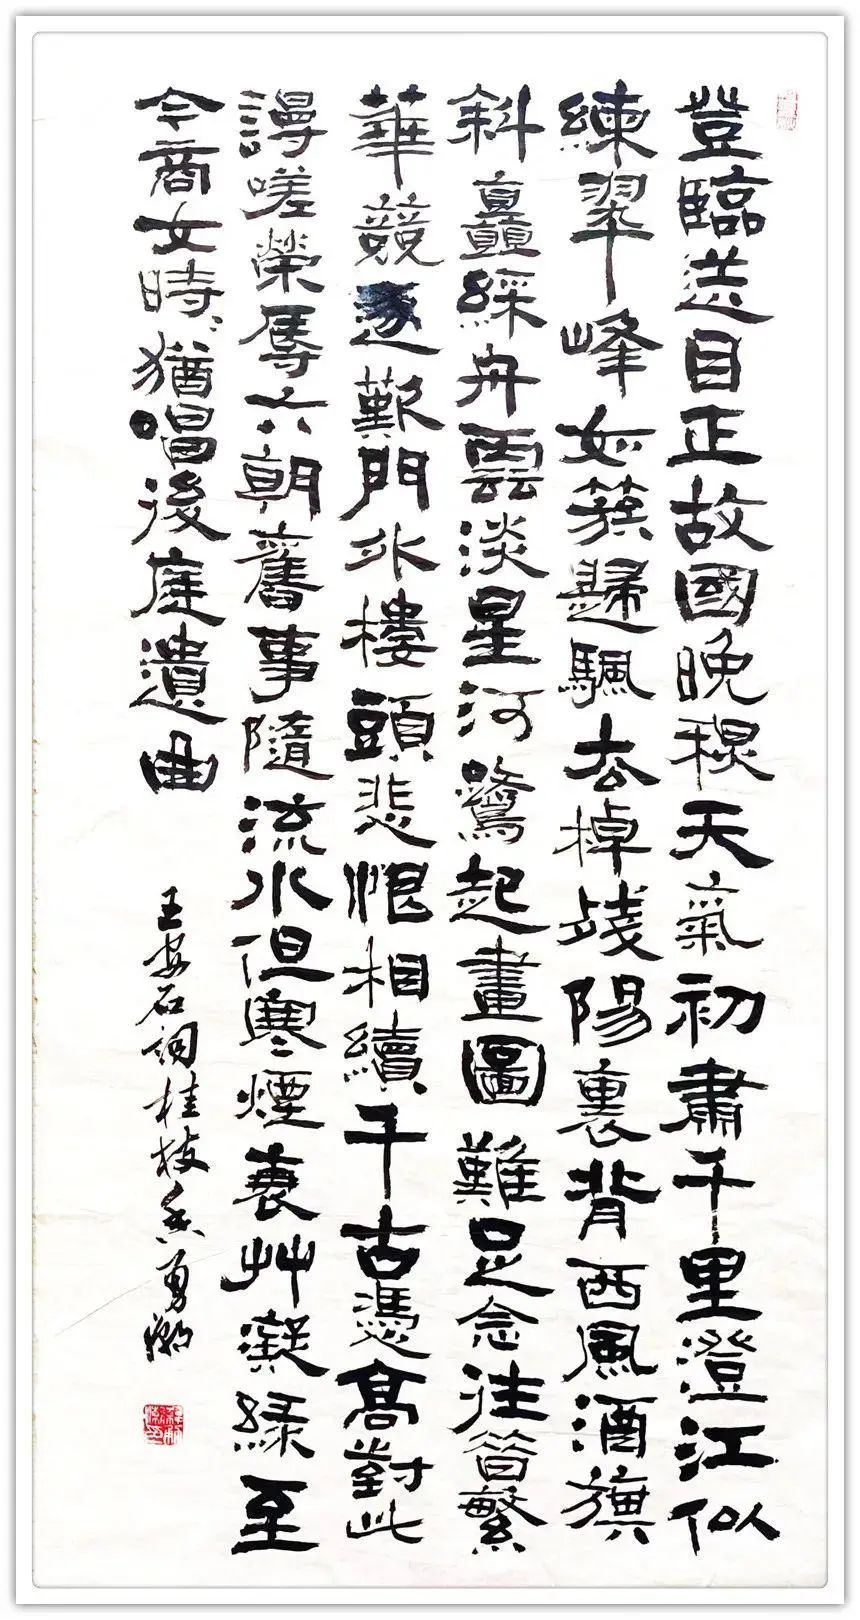 登臨送目正故國晚秋天氣初肅千里澄江似
練翠峰如簇歸颿去棹殘陽裏背西風酒旗
斜矗綵舟雲淡星河鷺起畫圖難足念往昔繁
華競逐歎門外樓頭悲恨相續千古憑高對此
謾嗟榮辱六朝舊事隨流水但寒煙衰艸凝綠至
今商女時〻猶唱後庭遺曲
王安石词桂枝香勇